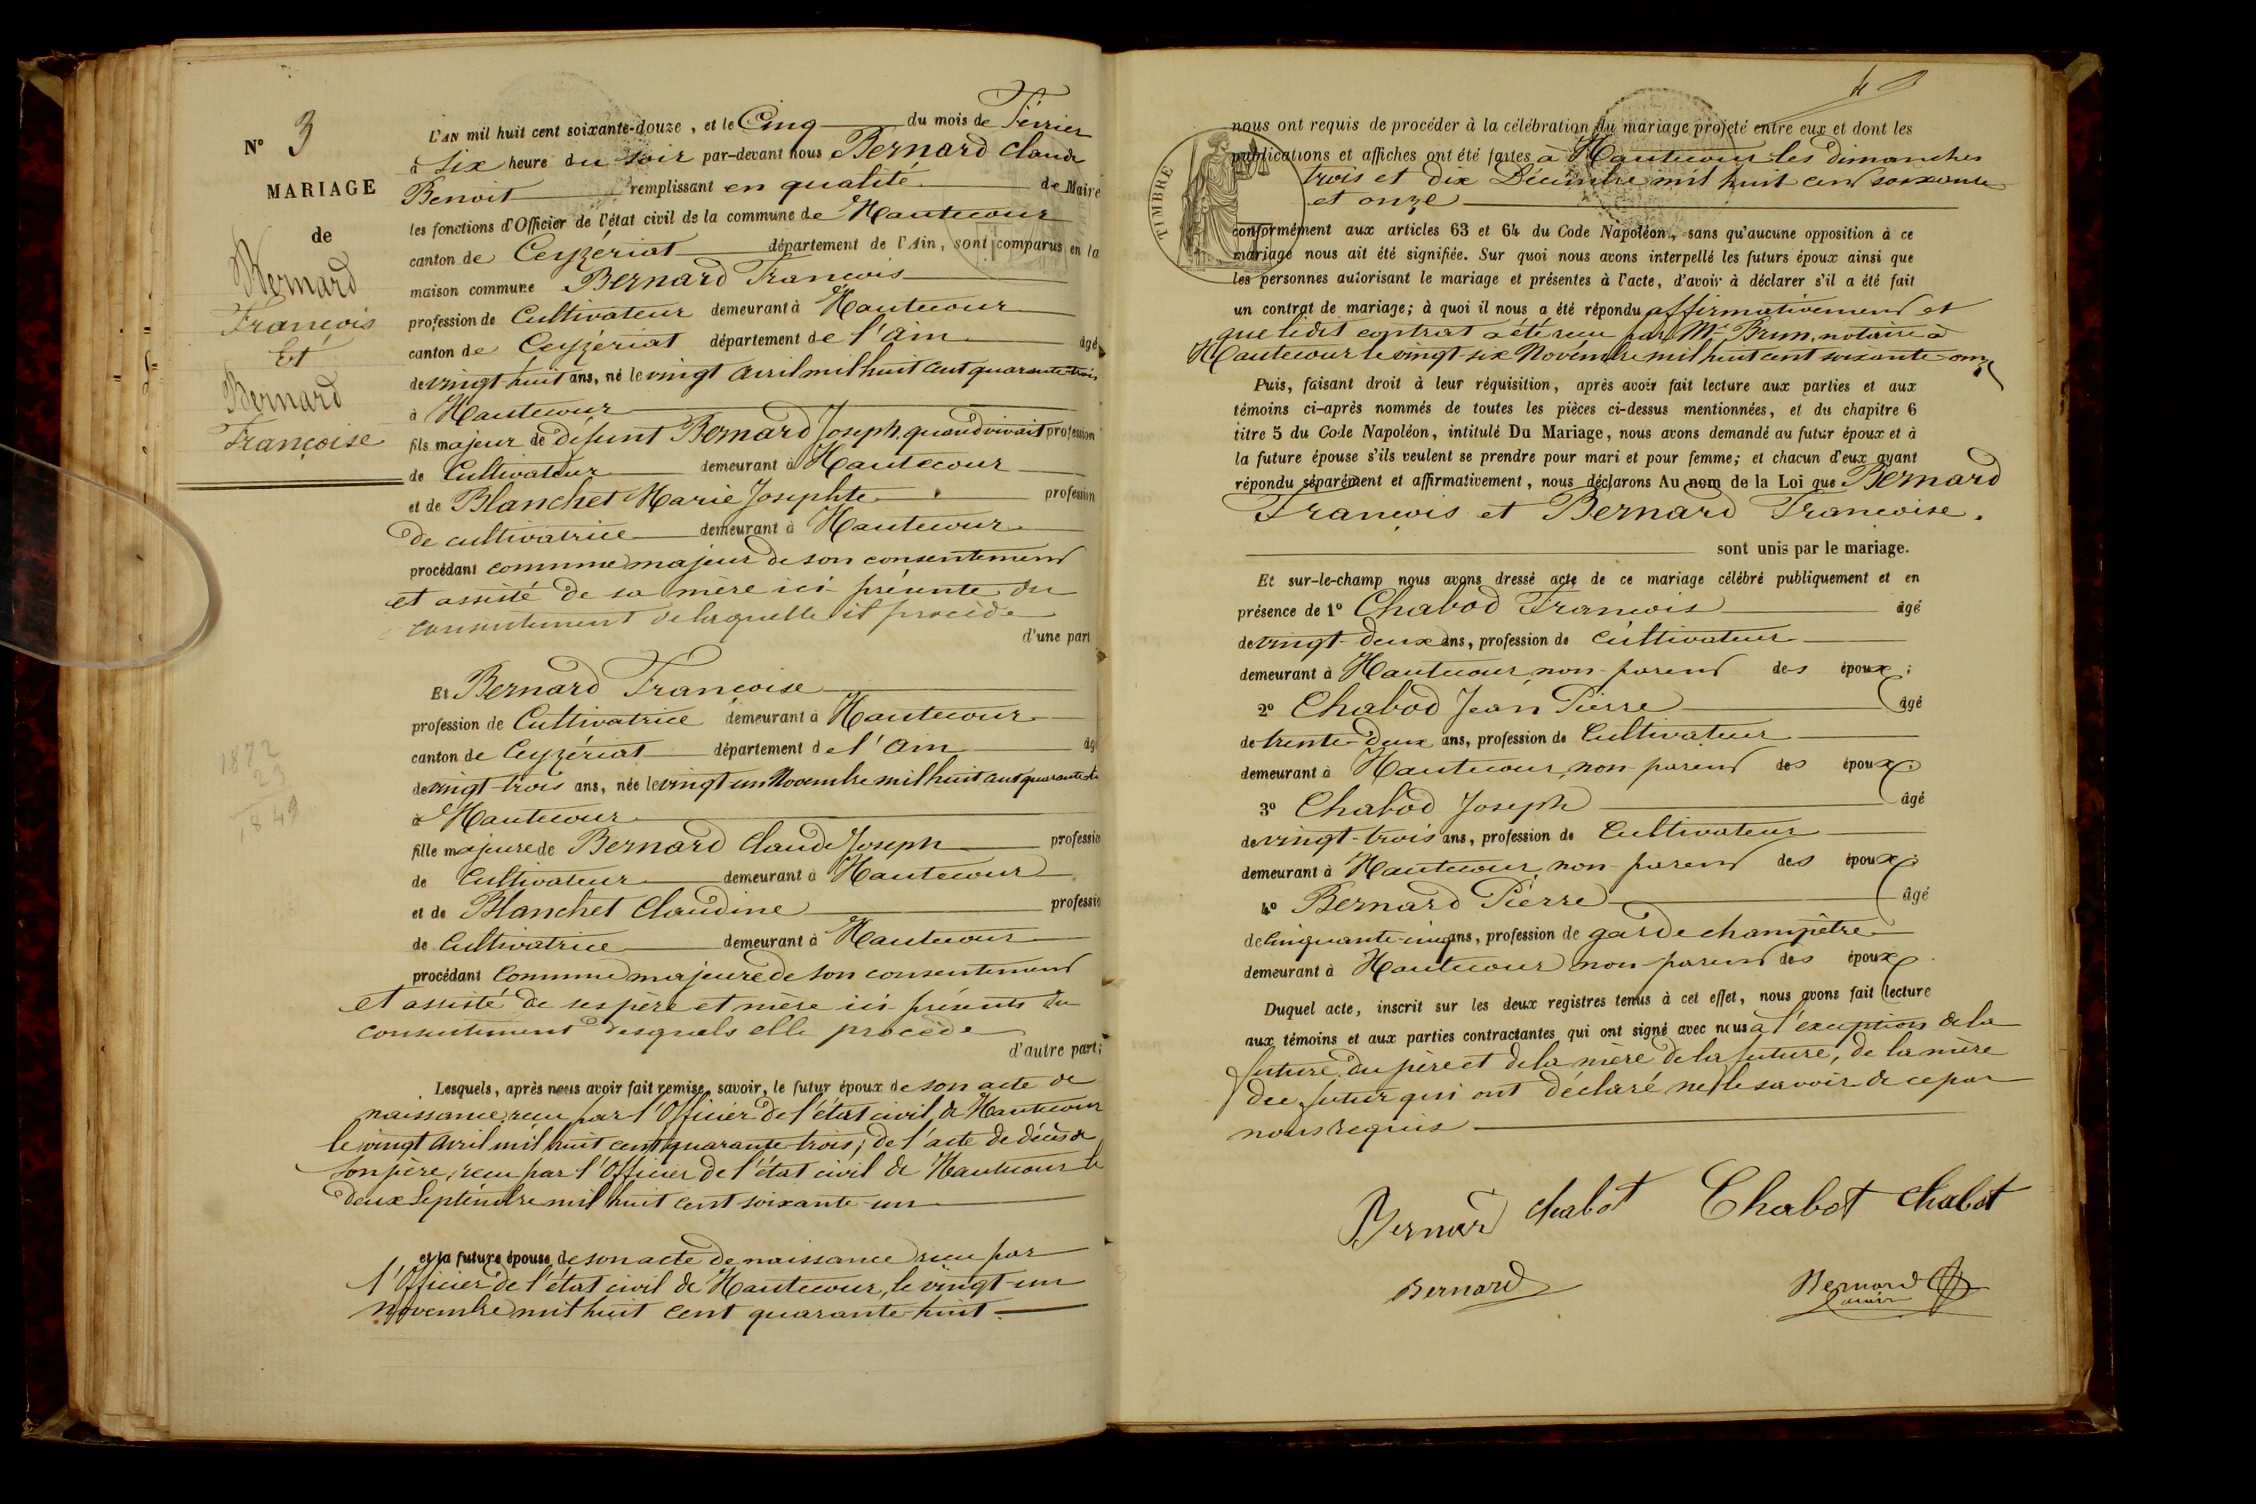 N° 3
MARIAGE
de
Bernard
François
Et
Bernard
Françoise
1872
23
1849
L'AN mil huit cent soixante-douze, et le Cinq du mois de Février
à Six heure du soir par-devant nous Bernard Claude
Benoit remplissant en qualité de Maire
les fonctions d'Officier de l'état civil de la commune de Hautecour
canton de Ceyzériat département de l'Ain, sont comparus en la
maison commune Bernard François
profession de Cultivateur demeurant à Hautecour
canton de Ceyzériat département de l'Ain âgé
de vingt huit ans, né le vingt avril mil huit cent quarante-trois
à Hautecour
fils majeur de défunt Bernard Joseph quand vivait profession
de Cultivateur demeurant à Hautecour
et de Blanchet Marie Josephte profession
de cultivatrice demeurant à Hautecour
procédant comme majeur de son consentement
et assisté de sa mère ici présente du
consentement de laquelle il procède
d'une part
Et Bernard Françoise
profession de Cultivatrice demeurant à Hautecour
canton de Ceyzériat département de l'Ain âgé
de vingt-trois ans, née le vingt un Novembre mil huit cent quarante
à Hautecour
fille majeure de Bernard Claude Joseph professio
de Cultivateur demeurant à Hautecour
et de Blanchet Claudine professio
de Cultivatrice demeurant à Hautecour
procédant comme majeure de son consentement
et assisté de ses père et mère ici présents du
consentement desquels elle procède
d'autre part;
Lesquels, après nous avoir fait remise, savoir, le futur époux de son acte de
naissance reçu par l'Officier de l'état civil de Hautecour
le vingt avril mil huit cent quarante-trois; de l'acte de décès de
son père, reçu par l'Officier de l'état civil de Hautecour le
deux Septembre mil huit cent soixante-un
et la future épouse de son acte de naissance reçu par
l'Officier de l'état civil de Hautecour, le vingt-un
novembre mil huit cent quarante-huit
TIMBRE
nous ont requis de procéder à la célébration du mariage projeté entre eux et dont les
publications et affiches ont été faites à Hautecour les dimanches
trois et dix Décembre mil huit cent soixante
et onze
conformément aux articles 63 et 64 du Code Napoléon, sans qu'aucune opposition à ce
mariage nous ait été signifiée. Sur quoi nous avons interpellé les futurs époux ainsi que
les personnes autorisant le mariage et présentes à l'acte, d'avoir à déclarer s'il a été fait
un contrat de mariage; à quoi il nous a été répondu affirmativement et
que ledit contrat a été reçu par Me Brun, notaire à
Hautecour le vingt-six Novembre mil huit cent soixante-onze
Puis, faisant droit à leur réquisition, après avoir fait lecture aux parties et aux
témoins ci-après nommés de toutes les pièces ci-dessus mentionnées, et du chapitre 6
titre 5 du Code Napoléon, intitulé Du Mariage, nous avons demandé au futur époux et à
la future épouse s'ils veulent se prendre pour mari et pour femme; et chacun d'eux ayant
répondu séparément et affirmativement, nous déclarons Au nom de la Loi que Bernard
François et Bernard Françoise.
sont unis par le mariage.
Et sur-le-champ nous avons dressé acte de ce mariage célébré publiquement et en
présence de 1° Chabod François âgé
de vingt-deux ans, profession de Cultivateur
demeurant à Hautecour non parent des époux;
2° Chabod Jean Pierre âgé
de trente-deux ans, profession de Cultivateur
demeurant à Hautecour, non parent des époux;
3° Chabod Joseph âgé
de vingt-trois ans, profession de Cultivateur
demeurant à Hautecour, non parent des époux;
4° Bernard Pierre âgé
de cinquante-cinq ans, profession de garde champêtre
demeurant à Hautecour non parent des époux.
Duquel acte, inscrit sur les deux registres tenus à cet effet, nous avons fait lecture
aux témoins et aux parties contractantes qui ont signé avec nous à l'exception de la
future, du père et de la mère de la future, de la mère
du futur qui ont déclaré ne le savoir de ce par
nous requis
Bernard chabot Chabot chabot
Bernard Bernard
maire